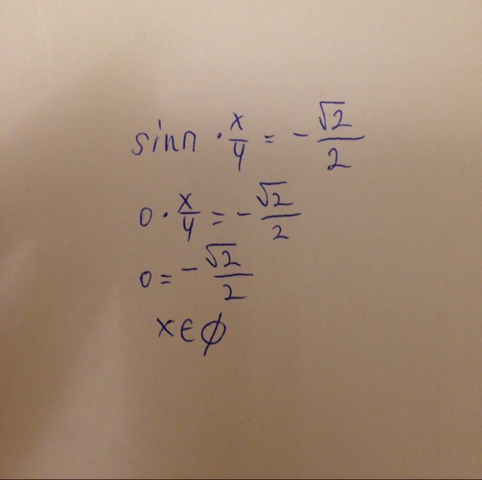 sinπ · x/4 = - √2/2
0 · x/4 = - √2/2
0 = - √2/2
x ∈ ∅